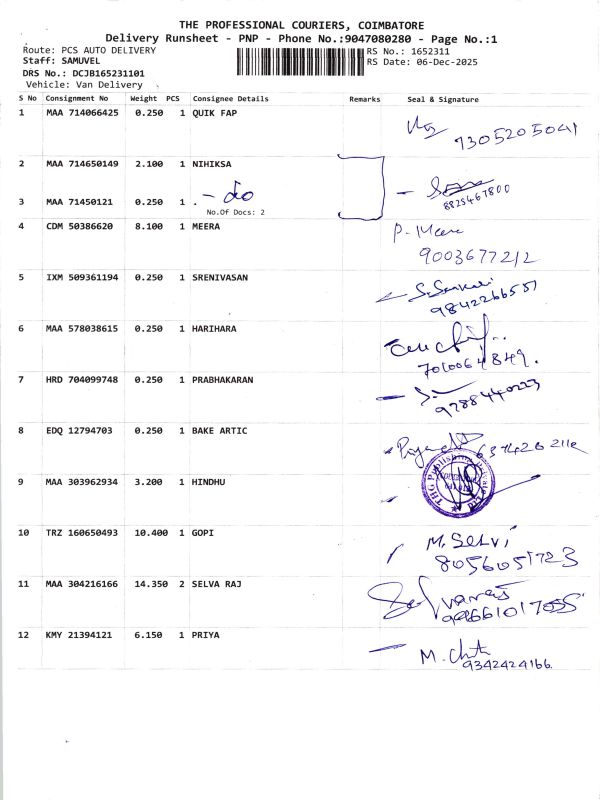 THE PROFESSIONAL COURIERS, COIMBATORE
Delivery Runsheet - PNP - Phone No.:9047080280 - Page No.:1
Route: PCS AUTO DELIVERY RS No.: 1652311
Staff: SAMUVEL RS Date: 06-Dec-2025
DRS No.: DCJB165231101
Vehicle: Van Delivery
S No Consignment No Weight PCS Consignee Details Remarks Seal & Signature
1 MAA 714066425 0.250 1 QUIK FAP
7305205041
2 MAA 714650149 2.100 1 NIHIKSA
8825467800
3 MAA 71450121 0.250 1 . - do
No.Of Docs: 2
4 CDM 50386620 8.100 1 MEERA P. Meera
9003677212
5 IXM 509361194 0.250 1 SRENIVASAN S. Sankari
9842266551
6 MAA 578038615 0.250 1 HARIHARA
7010064849.
7 HRD 704099748 0.250 1 PRABHAKARAN
9788440223
8 EDQ 12794703 0.250 1 BAKE ARTIC
9 MAA 303962934 3.200 1 HINDHU
THG Publishing Private Ltd
10 TRZ 160650493 10.400 1 GOPI M. SELVI
8056051723
11 MAA 304216166 14.350 2 SELVA RAJ Selvaraj
9966101705
12 KMY 21394121 6.150 1 PRIYA
9342424166